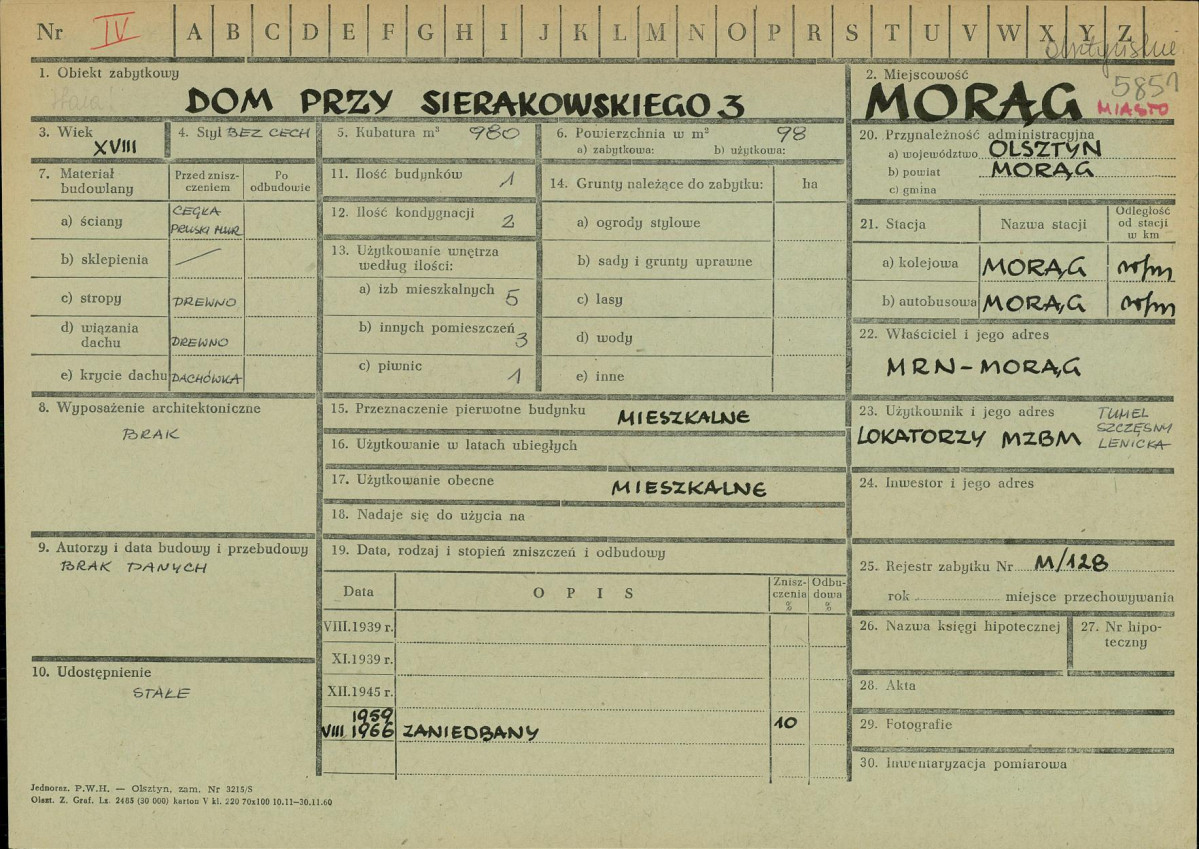 Nr IV A B C D E F G H I J K L M N O P R S T U V W X Y Z
1. Obiekt zabytkowy
DOM PRZY SIERAKOWSKIEGO 3
2. Miejscowość
5851
MORĄG MIASTO
3. Wiek
XVIII
4. Styl BEZ CECH
5. Kubatura m³ 980
6. Powierzchnia w m² 98
a) zabytkowa: b) użytkowa:
7. Materiał budowlany
Przed zniszczeniem
Po odbudowie
a) ściany CEGŁA
PRUSKI MUR
b) sklepienia —
c) stropy DREWNO
d) wiązania
dachu DREWNO
e) krycie dachu DACHÓWKA
8. Wyposażenie architektoniczne
BRAK
9. Autorzy i data budowy i przebudowy
BRAK DANYCH
10. Udostępnienie
STAŁE
11. Ilość budynków 1
12. Ilość kondygnacji 2
13. Użytkowanie wnętrza
według ilości:
a) izb mieszkalnych 5
b) innych pomieszczeń 3
c) piwnic 1
14. Grunty należące do zabytku: ha
a) ogrody stylowe
b) sady i grunty uprawne
c) lasy
d) wody
e) inne
15. Przeznaczenie pierwotne budynku MIESZKALNE
16. Użytkowanie w latach ubiegłych
17. Użytkowanie obecne MIESZKALNE
18. Nadaje się do użycia na
19. Data, rodzaj i stopień zniszczeń i odbudowy
Data OPIS Zniszczenia % Odbudowa %
VIII.1939 r.
XI.1939 r.
XII.1945 r.
1959
VIII 1966 ZANIEDBANY 10
20. Przynależność administracyjna
a) województwo OLSZTYN
b) powiat MORĄG
c) gmina
21. Stacja Nazwa stacji Odległość od stacji w km
a) kolejowa MORĄG
b) autobusowa MORĄG
22. Właściciel i jego adres
MRN-MORĄG
23. Użytkownik i jego adres
LOKATORZY MZBM
SZCZĘSNY
LENICKA
24. Inwestor i jego adres
25. Rejestr zabytku Nr M/128
rok miejsce przechowywania
26. Nazwa księgi hipotecznej
27. Nr hipoteczny
28. Akta
29. Fotografie
30. Inwentaryzacja pomiarowa
Jednoraz. P.W.H. — Olsztyn, zam. Nr 3215/S
Olszt. Z. Graf. Lz. 2485 (30 000) karton V kl. 220 70x100 10.11—30.11.60